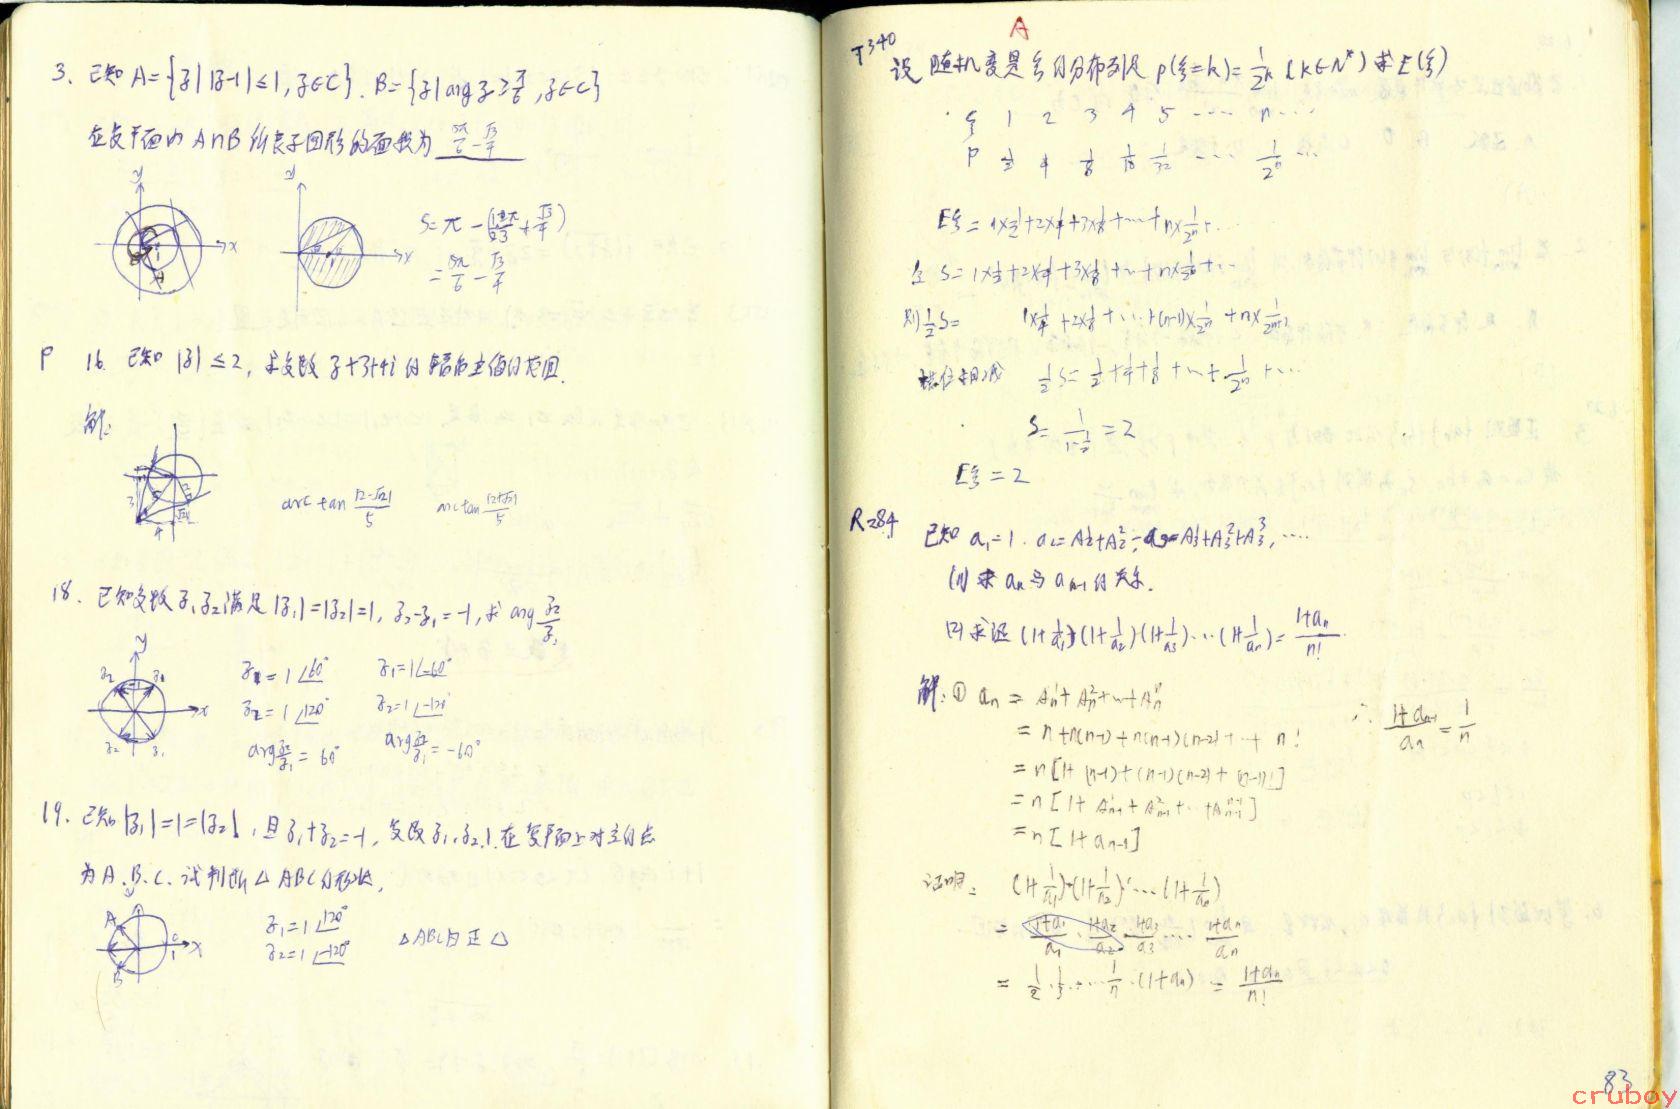 3. 已知 A={z| |z-1|≤1, z∈C}. B={z| arg z ≥ π/6, z∈C}
在复平面内 A∩B 所表示图形的面积为 5π/6 - √3/4
y
y
x
x
S = π - (
+ √3/4)
= 5π/6 - √3/4
P 16. 已知 |z| ≤ 2, 求复数 z+3+4i 的辐角主值的范围.
解:
3
4
arc tan |2-√21|/5
arctan |2+√21|/5
18. 已知复数 z₁ z₂ 满足 |z₁|=|z₂|=1, z₂-z₁=-1, 求 arg z₂/z₁
y
z₂
z₁
x
z₂
z₁
z₁ = 1∠60°
z₁=1∠-60°
z₂ = 1∠120°
z₂=1∠-120°
arg z₂/z₁ = 60°
arg z₂/z₁ = -60°
19. 已知 |z₁|=1=|z₂|, 且 z₁+z₂=-1, 复数 z₁,z₂,1 在复平面上对应的点
为 A.B.C. 试判断△ABC的形状.
A
B
c
1
x
z₁=1∠120°
z₂=1∠-120°
△ABC为正△
A
T340
设随机变量ξ的分布列是 p(ξ=k)=1/2ᵏ (k∈N*) 求E(ξ)
ξ 1 2 3 4 5 ···· n ···
P 1/2 1/4 1/8 1/16 1/32 ···· 1/2ⁿ ···
Eξ = 1×1/2+2×1/4+3×1/8+···+n×1/2ⁿ+···
令 S=1×1/2+2×1/4+3×1/8+···+n×1/2ⁿ+···
则 1/2 S= 1×1/4+2×1/8+···+(n-1)×1/2ⁿ+n×1/2ⁿ⁺¹
错位相减 1/2 S = 1/2+1/4+1/8+···+1/2ⁿ+···
S = 1/(1-1/2) = 2
Eξ = 2
R284
已知 a₁=1. a₂=A₂¹+A₂², a₃=A₃¹+A₃²+A₃³, ····
(1) 求 aₙ与 aₙ₋₁的关系.
(2) 求证 (1+1/a₁)(1+1/a₂)(1+1/a₃)···(1+1/aₙ) = (1+aₙ)/n!
解: ① aₙ = Aₙ¹+Aₙ²+···+Aₙⁿ
= n+n(n-1)+n(n-1)(n-2)+···+ n!
= n[1+(n-1)+(n-1)(n-2)+ (n-1)!]
= n[1+Aₙ₋₁¹+Aₙ₋₁²+···+Aₙ₋₁ⁿ⁻¹]
= n[1+aₙ₋₁]
∴ (1+aₙ₋₁)/aₙ = 1/n
证明: (1+1/a₁)·(1+1/a₂)·····(1+1/aₙ)
= (1+a₁)/a₁ · (1+a₂)/a₂ · (1+a₃)/a₃ ···· (1+aₙ)/aₙ
= 1/2 · 1/3 ···· 1/n · (1+aₙ) = (1+aₙ)/n!
83
cruboy